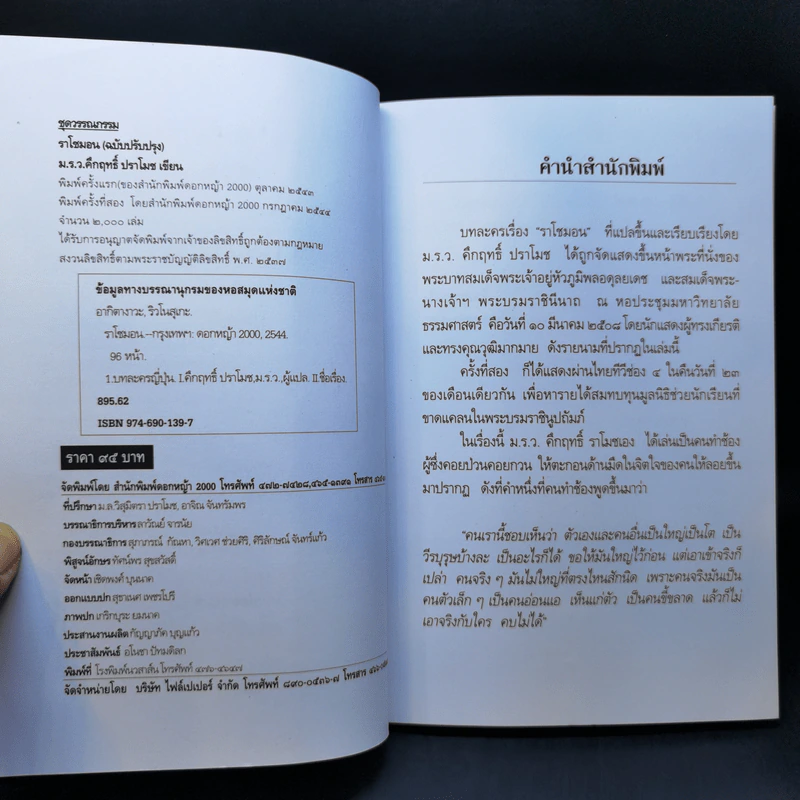 ชุดวรรณกรรม
ราโชมอน (ฉบับปรับปรุง)
ม.ร.ว.คึกฤทธิ์ ปราโมช เขียน
พิมพ์ครั้งแรก(ของสำนักพิมพ์ดอกหญ้า 2000) ตุลาคม ๒๕๔๓
พิมพ์ครั้งที่สอง โดยสำนักพิมพ์ดอกหญ้า 2000 กรกฎาคม ๒๕๔๔
จำนวน ๒,๐๐๐ เล่ม
ได้รับการอนุญาตจัดพิมพ์จากเจ้าของลิขสิทธิ์ถูกต้องตามกฎหมาย
สงวนลิขสิทธิ์ตามพระราชบัญญัติลิขสิทธิ์ พ.ศ. ๒๕๓๗
ข้อมูลทางบรรณานุกรมของหอสมุดแห่งชาติ
อากิตางาวะ, ริวโนสุเกะ.
ราโชมอน.--กรุงเทพฯ: ดอกหญ้า 2000, 2544.
96 หน้า.
1.บทละครญี่ปุ่น. I.คึกฤทธิ์ ปราโมช,ม.ร.ว.,ผู้แปล. II.ชื่อเรื่อง.
895.62
ISBN 974-690-139-7
ราคา ๙๕ บาท
จัดพิมพ์โดย สำนักพิมพ์ดอกหญ้า 2000 โทรศัพท์ ๔๗๒-๗๔๒๘,๔๖๕-๑๓๙๑ โทรสาร
ที่ปรึกษา ม.ล.วิสุมิตรา ปราโมช, อาจิณ จันทรัมพร
บรรณาธิการบริหาร ลาวัณย์ จารนัย
กองบรรณาธิการ สุภาภรณ์ กัณหา, วิศเวศ ช่วยศิริ, ศิริลักษณ์ จันทร์แก้ว
พิสูจน์อักษร ทัศน์พร สุขสวัสดิ์
จัดหน้า เชิดพงศ์ บุนนาค
ออกแบบปก สุธาเนศ เพชรโปรี
ภาพปก เกริกบุระ ยมนาค
ประสานงานผลิต กัญญาภัค บุญแก้ว
ประชาสัมพันธ์ อโนชา ปัทมดิลก
พิมพ์ที่ โรงพิมพ์นวสาส์น โทรศัพท์ ๔๗๖-๔๖๔๗
จัดจำหน่ายโดย บริษัท ไฟล์เปเปอร์ จำกัด โทรศัพท์ ๘๙๐-๐๕๓๖-๗ โทรสาร
คำนำสำนักพิมพ์
บทละครเรื่อง "ราโชมอน" ที่แปลขึ้นและเรียบเรียงโดย
ม.ร.ว. คึกฤทธิ์ ปราโมช ได้ถูกจัดแสดงขึ้นหน้าพระที่นั่งของ
พระบาทสมเด็จพระเจ้าอยู่หัวภูมิพลอดุลยเดช และสมเด็จพระ-
นางเจ้าฯ พระบรมราชินีนาถ ณ หอประชุมมหาวิทยาลัย
ธรรมศาสตร์ คือวันที่ ๑๐ มีนาคม ๒๕๐๘ โดยนักแสดงผู้ทรงเกียรติ
และทรงคุณวุฒิมากมาย ดังรายนามที่ปรากฏในเล่มนี้
ครั้งที่สอง ก็ได้แสดงผ่านไทยทีวีช่อง ๔ ในคืนวันที่ ๒๓
ของเดือนเดียวกัน เพื่อหารายได้สมทบทุนมูลนิธิช่วยนักเรียนที่
ขาดแคลนในพระบรมราชินูปถัมภ์
ในเรื่องนี้ ม.ร.ว. คึกฤทธิ์ ราโมชเอง ได้เล่นเป็นคนทำช้อง
ผู้ซึ่งคอยป่วนคอยกวน ให้ตะกอนด้านมืดในจิตใจของคนให้ลอยขึ้น
มาปรากฏ ดังที่คำหนึ่งที่คนทำช้องพูดขึ้นมาว่า
"คนเรานี้ชอบเห็นว่า ตัวเองและคนอื่นเป็นใหญ่เป็นโต เป็น
วีรบุรุษบ้างละ เป็นอะไรก็ได้ ขอให้มันใหญ่ไว้ก่อน แต่เอาเข้าจริงก็
เปล่า คนจริง ๆ มันไม่ใหญ่ที่ตรงไหนสักนิด เพราะคนจริงมันเป็น
คนตัวเล็ก ๆ เป็นคนอ่อนแอ เห็นแก่ตัว เป็นคนขี้ขลาด แล้วก็ไม่
เอาจริงกับใคร คบไม่ได้"